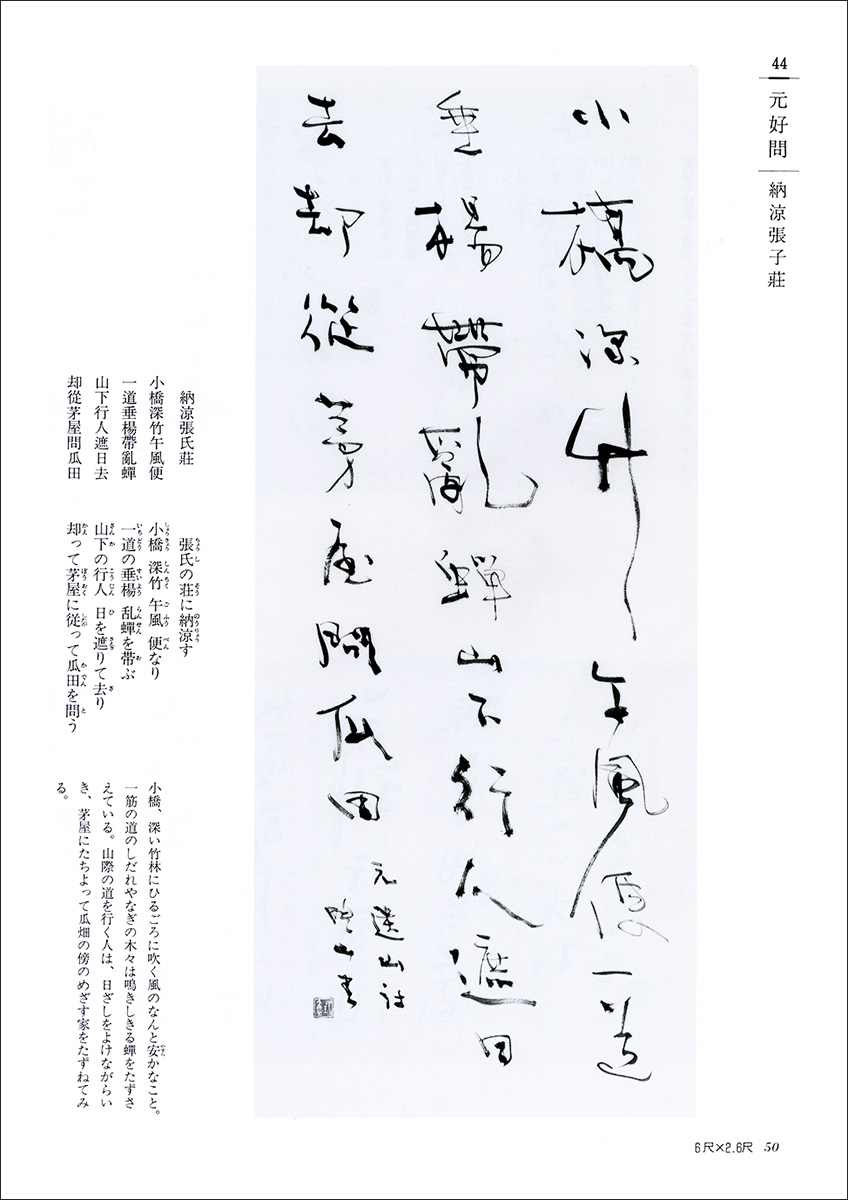 44 元好問 納涼張子荘
小橋深竹午風便一道
垂楊帶亂蟬山下行人遮日
去却從茅屋問瓜田
元遺山詩
山書
納涼張氏荘
小橋深竹午風便
一道垂楊帶亂蟬
山下行人遮日去
却從茅屋問瓜田
張氏の荘に納涼す
小橋 深竹 午風 便なり
一道の垂楊 乱蟬を帯ぶ
山下の行人 日を遮りて去り
却って茅屋に従って瓜田を問う
小橋、深い竹林にひるごろに吹く風のなんと安かなこと。
一筋の道のしだれやなぎの木々は鳴きしきる蟬をたずさ
えている。山際の道を行く人は、日ざしをよけながらい
き、茅屋にたちよって瓜畑の傍のめざす家をたずねてみ
る。
6尺×2.6尺 50